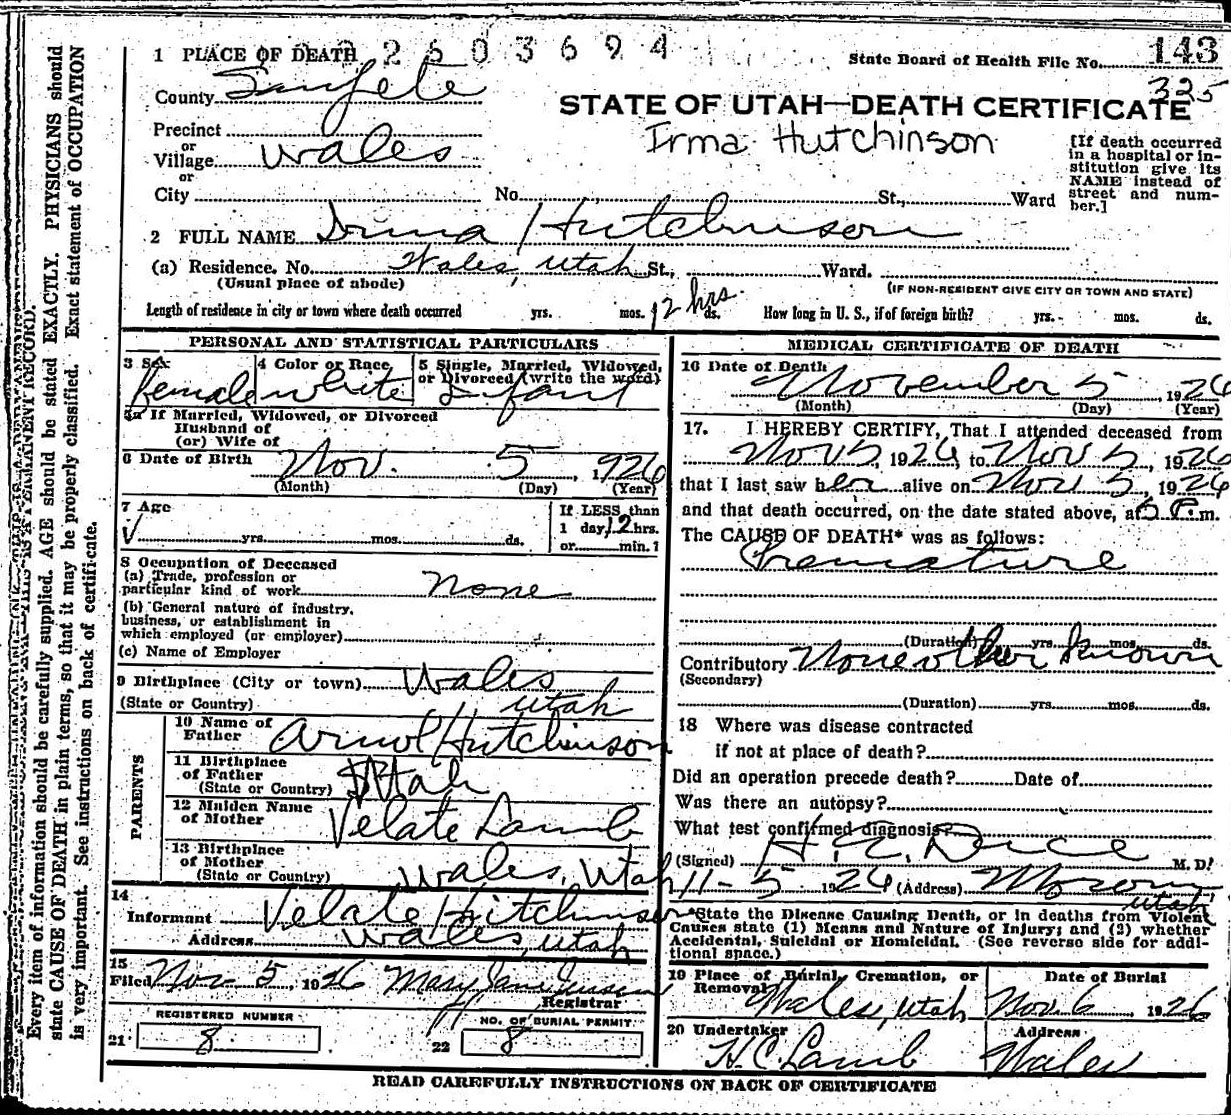 1 PLACE OF DEATH 2 6 0 3 6 9 4
State Board of Health File No. 143
325
County Sanpete
STATE OF UTAH—DEATH CERTIFICATE
Irma Hutchinson
Precinct
or
Village Wales
or
City No. St., Ward
[If death occurred in a hospital or institution give its NAME instead of street and number.]
2 FULL NAME Irma Hutchinson
(a) Residence. No. Wales, Utah St., Ward.
(Usual place of abode) (IF NON-RESIDENT GIVE CITY OR TOWN AND STATE)
Length of residence in city or town where death occurred yrs. mos. 12 hrs. ds. How long in U. S., if of foreign birth? yrs. mos. ds.
PERSONAL AND STATISTICAL PARTICULARS
3 Sex Female
4 Color or Race White
5 Single, Married, Widowed, or Divorced (write the word) Infant
5a If Married, Widowed, or Divorced
Husband of
(or) Wife of
6 Date of Birth Nov. 5, 1926
(Month) (Day) (Year)
7 Age
yrs. mos. ds.
If LESS than
1 day, 12 hrs.
or min.?
8 Occupation of Deceased
(a) Trade, profession or
particular kind of work None
(b) General nature of industry,
business, or establishment in
which employed (or employer)
(c) Name of Employer
9 Birthplace (City or town) Wales
(State or Country) Utah
PARENTS
10 Name of
Father Hutchinson
11 Birthplace
of Father
(State or Country) Utah
12 Maiden Name
of Mother Velate Lamb
13 Birthplace
of Mother
(State or Country) Wales, Utah
14
Informant Velate Hutchinson
Address Wales, Utah
15
Filed Nov 5, 1926 Mary Jane
Registrar
REGISTERED NUMBER
21 8
NO. OF BURIAL PERMIT
22 8
MEDICAL CERTIFICATE OF DEATH
16 Date of Death
November 5, 1926
(Month) (Day) (Year)
17. I HEREBY CERTIFY, That I attended deceased from
Nov 5, 1926, to Nov 5, 1926
that I last saw her alive on Nov 5, 1926
and that death occurred, on the date stated above, at 6 P.m.
The CAUSE OF DEATH* was as follows:
Premature
(Duration) yrs. mos. ds.
Contributory None other known
(Secondary)
(Duration) yrs. mos. ds.
18 Where was disease contracted
if not at place of death?
Did an operation precede death? Date of
Was there an autopsy?
What test confirmed diagnosis?
(Signed) H. M. D.
11-5 1926 (Address) Moroni, Utah
*State the Disease Causing Death, or in deaths from Violent
Causes state (1) Means and Nature of Injury; and (2) whether
Accidental, Suicidal or Homicidal. (See reverse side for additional space.)
19 Place of Burial, Cremation, or
Removal Wales, Utah
Date of Burial
Nov. 6 1926
20 Undertaker
H. C. Lamb
Address
Wales
READ CAREFULLY INSTRUCTIONS ON BACK OF CERTIFICATE
Every item of information should be carefully supplied. AGE should be stated EXACTLY. PHYSICIANS should
state CAUSE OF DEATH in plain terms, so that it may be properly classified. Exact statement of OCCUPATION
is very important. See instructions on back of certificate.